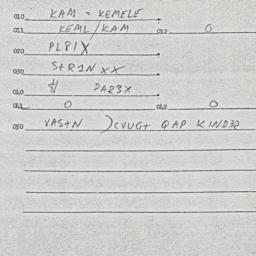 010 KAM = KEMELE
011 KEML/KAM 012 0
020 PL81X
030 StR1N xx
040 PAR3X
041 0 042 0
050 VAStN )CVUGt QAP KIND3R